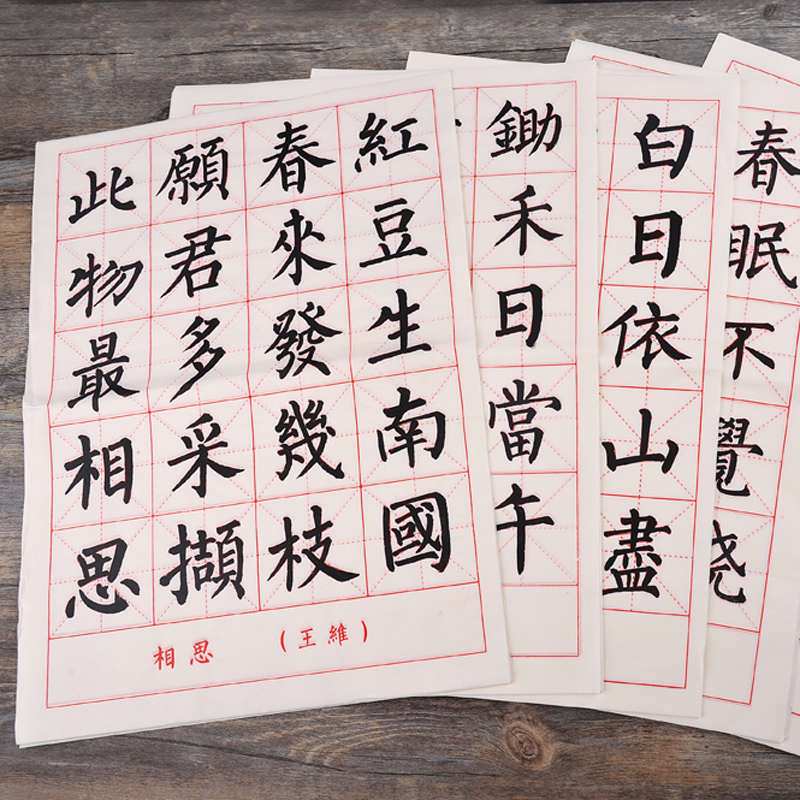 紅豆生南國
春來發幾枝
願君多采擷
此物最相思
相思 （王維）
鋤禾日當午
白日依山盡
春眠不覺